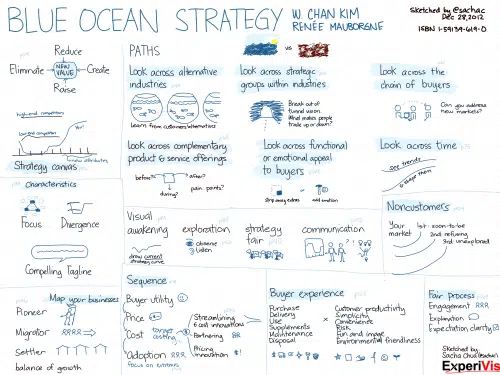 BLUE OCEAN STRATEGY
W. CHAN KIM
RENÉE MAUBORGNE
Sketched by @sachac
DEC 28, 2012
ISBN 1-59139-619-0
Reduce
Eliminate
NEW VALUE
Create
Raise
high-end competitors
low-end competitors
You!
Strategy canvas
Characteristics
FOCUS
Divergence
Compelling Tagline
PATHS
vs
Look across alternative
industries
Learn from customers/alternatives
Look across strategic
groups within industries
Break out of
tunnel vision
What makes people
trade up or down?
Look across the
chain of buyers
Can you address
new markets?
Look across complementary
product & service offerings
before?
after?
during?
pain points?
Look across functional
or emotional appeal
to buyers
strip away extras
or
add emotion
Look across time
see trends
& shape them
Visual
awakening
draw current
strategy curve
exploration
observe
& listen
strategy
fair
communication
Noncustomers
Your
market
1st: soon-to-be
2nd: refusing
3rd: unexplored
Map your businesses
Pioneer
Migrator
Settler
balance of growth
Sequence
Buyer utility
Price
Cost
target costing
Adoption
Streamlining
& cost innovations
Partnering
Pricing
innovation
Buyer experience
Purchase
Delivery
Use
Supplements
Maintenance
Disposal
x
Customer productivity
Simplicity
Convenience
Risk
Fun and image
Environmental friendliness
Fair process
Engagement
Explanation
Expectation clarity
Sketched by:
Sacha Chua
ExperiVis